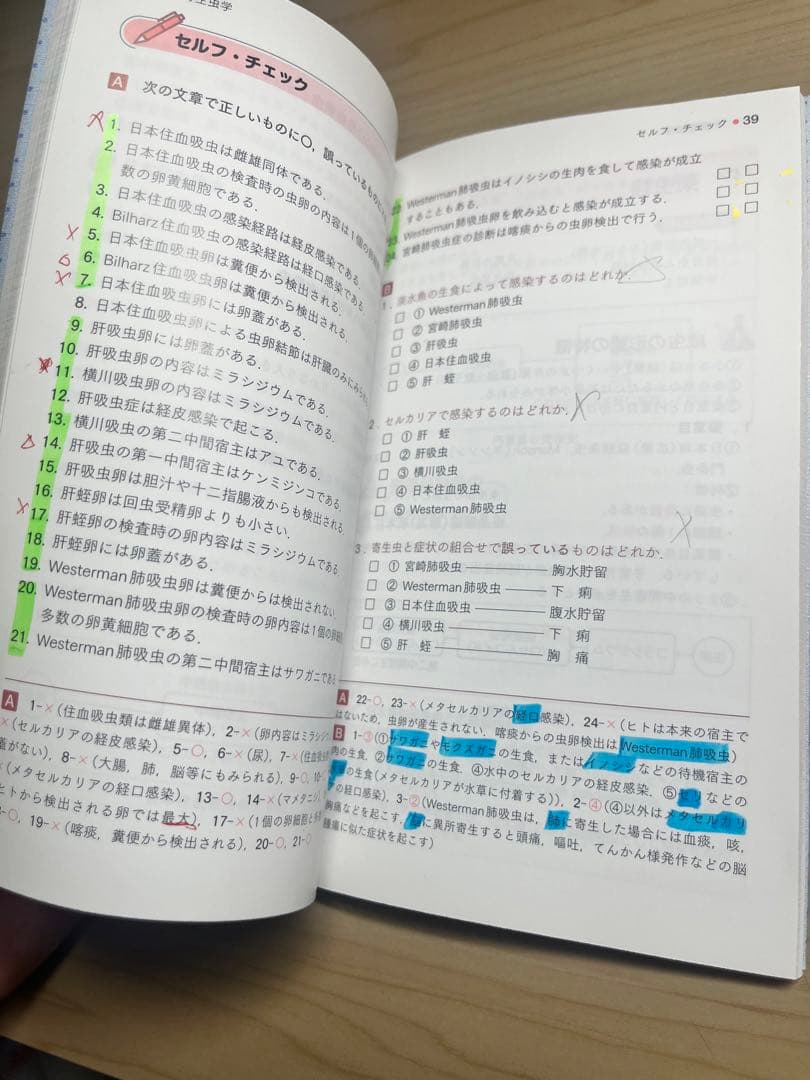 生虫学
セルフ・チェック
A 次の文章で正しいものに〇，誤っているものに
1. 日本住血吸虫は雌雄同体である．
2. 日本住血吸虫の検査時の虫卵の内容は1個の卵細胞
数の卵黄細胞である．
3. 日本住血吸虫の感染経路は経皮感染である．
4. Bilharz住血吸虫の感染経路は経口感染である
5. 日本住血吸虫卵は糞便から検出される．
6. Bilharz住血吸虫卵は糞便から検出される．
7. 日本住血吸虫卵には卵蓋がある．
8. 日本住血吸虫卵による虫卵結節は肝臓のみにみられ
9. 肝吸虫卵には卵蓋がある．
10. 肝吸虫卵の内容はミラシジウムである．
11. 横川吸虫卵の内容はミラシジウムである．
12. 肝吸虫症は経皮感染で起こる．
13. 横川吸虫の第二中間宿主はアユである．
14. 肝吸虫の第一中間宿主はケンミジンコである．
15. 肝吸虫卵は胆汁や十二指腸液からも検出される．
16. 肝蛭卵は回虫受精卵よりも小さい．
17. 肝蛭卵の検査時の卵内容はミラシジウムである
18. 肝蛭卵には卵蓋がある．
19. Westerman肺吸虫卵は糞便からは検出されない．
20. Westerman肺吸虫卵の検査時の卵内容は1個の卵細胞
多数の卵黄細胞である．
21. Westerman肺吸虫の第二中間宿主はサワガニである
A 1-×（住血吸虫類は雌雄異体），2-×（卵内容はミラシジ
×（セルカリアの経皮感染），5-〇，6-×（尿），7-×（住血吸虫
蓋がない），8-×（大腸，肺，脳等にもみられる），9-〇，10-
（メタセルカリアの経口感染），13-〇，14-×（マメタニシ
ヒトから検出される卵では最大），17-×（1個の卵細胞と多
-〇，19-×（喀痰，糞便から検出される），20-〇，21-〇
セルフ・チェック ● 39
22. Westerman肺吸虫はイノシシの生肉を食して感染が成立
することもある．
23. Westerman肺吸虫卵を飲み込むと感染が成立する．
24. 宮崎肺吸虫症の診断は喀痰からの虫卵検出で行う．
B
1. 淡水魚の生食によって感染するのはどれか．
① Westerman肺吸虫
② 宮崎肺吸虫
③ 肝吸虫
④ 日本住血吸虫
⑤ 肝 蛭
2. セルカリアで感染するのはどれか．
① 肝 蛭
② 肝吸虫
③ 横川吸虫
④ 日本住血吸虫
⑤ Westerman肺吸虫
3. 寄生虫と症状の組合せで誤っているものはどれか．
① 宮崎肺吸虫 ――― 胸水貯留
② Westerman肺吸虫 ――― 下 痢
③ 日本住血吸虫 ――― 腹水貯留
④ 横川吸虫 ――― 下 痢
⑤ 肝 蛭 ――― 胸 痛
A 22-〇，23-×（メタセルカリアの経口感染），24-×（ヒトは本来の宿主で
はないため，虫卵が産生されない．喀痰からの虫卵検出はWesterman肺吸虫）
B 1-③（①サワガニやモクズガニの生食，またはイノシシなどの待機宿主の
肉の生食．②サワガニの生食．④水中のセルカリアの経皮感染．⑤セリなどの
の生食（メタセルカリアが水草に付着する）），2-④（④以外はメタセルカリ
の経口感染），3-②（Westerman肺吸虫は，肺に寄生した場合には血痰，咳，
胸痛などを起こす．脳に異所寄生すると頭痛，嘔吐，てんかん様発作などの脳
腫瘍に似た症状を起こす）